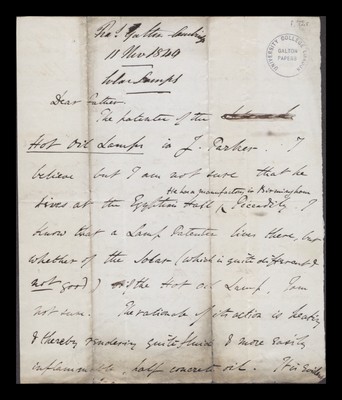 Fras Galton Cambridge
11 Nov 1840
Solar Lamps
UNIVERSITY COLLEGE LONDON
GALTON
PAPERS
Dear Father
The patentee of the
Hot Oil Lamps is J. Parker. I
believe but I am not sure that he
He has a manufactory in Birmingham
lives at the Egyptian Hall Piccadilly I
know that a Lamp Patentee lives there, but
whether of the Solar (which is quite different &
not good) or the Hot Oil Lamp, I am
not sure. The rationale of its action is heating
& thereby rendering quite fluid & more easily
inflammable, half concrete oil. It is